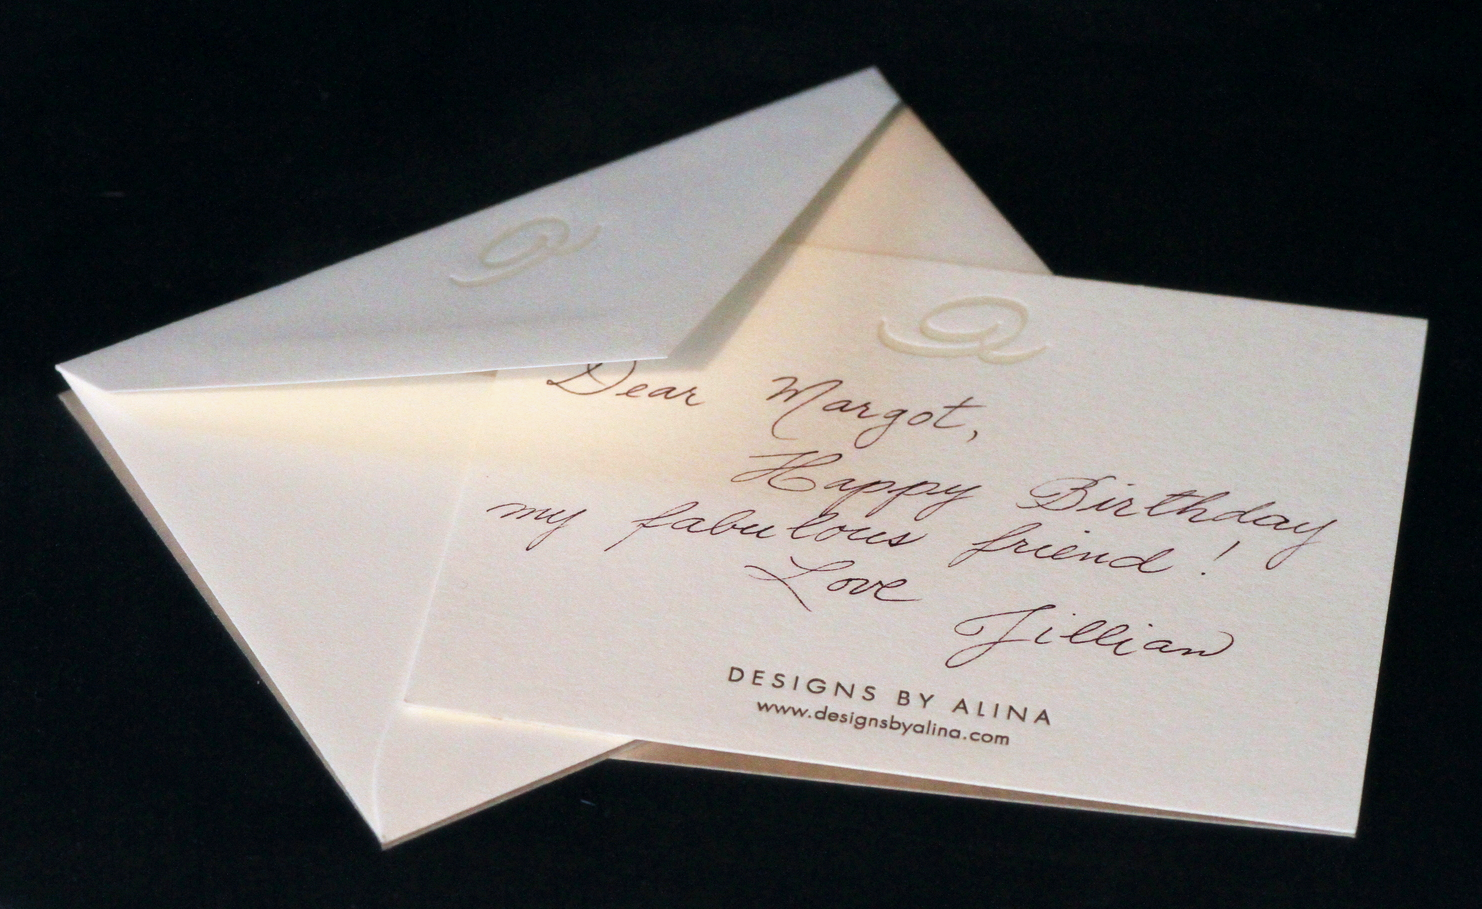 a
a
Dear Margot,
Happy Birthday
my fabulous friend!
Love
Jillian
DESIGNS BY ALINA
www.designsbyalina.com